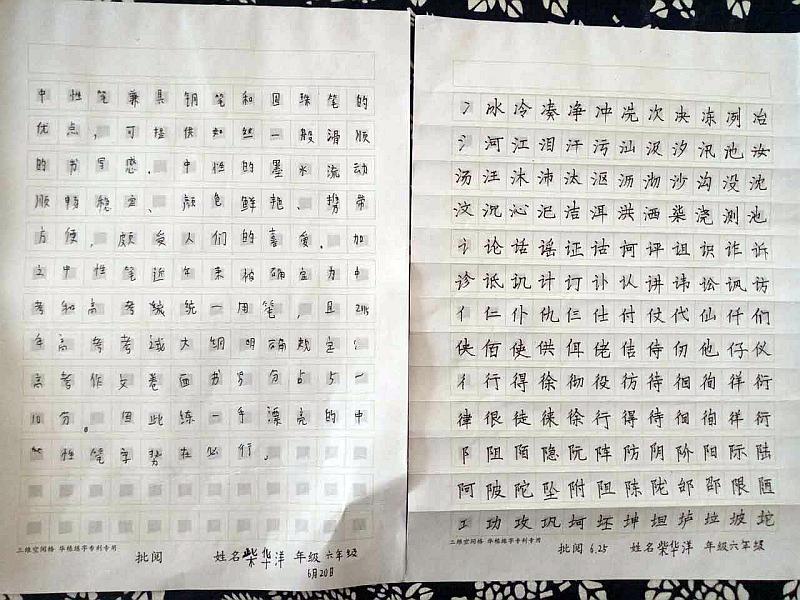 中性笔兼具钢笔和圆珠笔的
优点,可提供如丝一般滑顺
的书写感.中性的墨水流动
顺畅稳定、颜色鲜艳、携带
方便,颇受人们的喜爱.加
之中性笔近年来被确定为中
考和高考统一用笔,且
年高考考试大纲明确规定:
高考作文卷面书写分占5一
10分。但此练一手漂亮的中
性笔字势在必行,
三维空间格 华栋练字专利专用
批阅 姓名柴华洋 年级六年级
6月20日
冫冰冷凑净冲冼次决冻冽冶
氵河江泪汗污汕汲汐汛池汝
汤汪沫沛汰沤沥沏沙沟没沈
汶沉沁汜洁洱洪洒柒浇测池
讠论话谣证诂诃评诅识诈诉
诊诋讥计订讣认讲讳讼讽访
亻仁仆仇仨仕付仗代仙仟们
侠佰使供佴佬估侍仂他仔仪
彳行得徐彻役彷待徊徇徉衍
律很徒徕徐行得待徊徇徉衍
阝阻陌隐阮阵防阴阶阳际陆
阿陂陀坠附阻陈陇邰邵限陋
工功攻巩坷坯坤坦垆垃坡坨
三维空间格 华栋练字专利专用
批阅 6.25 姓名柴华洋 年级六年级